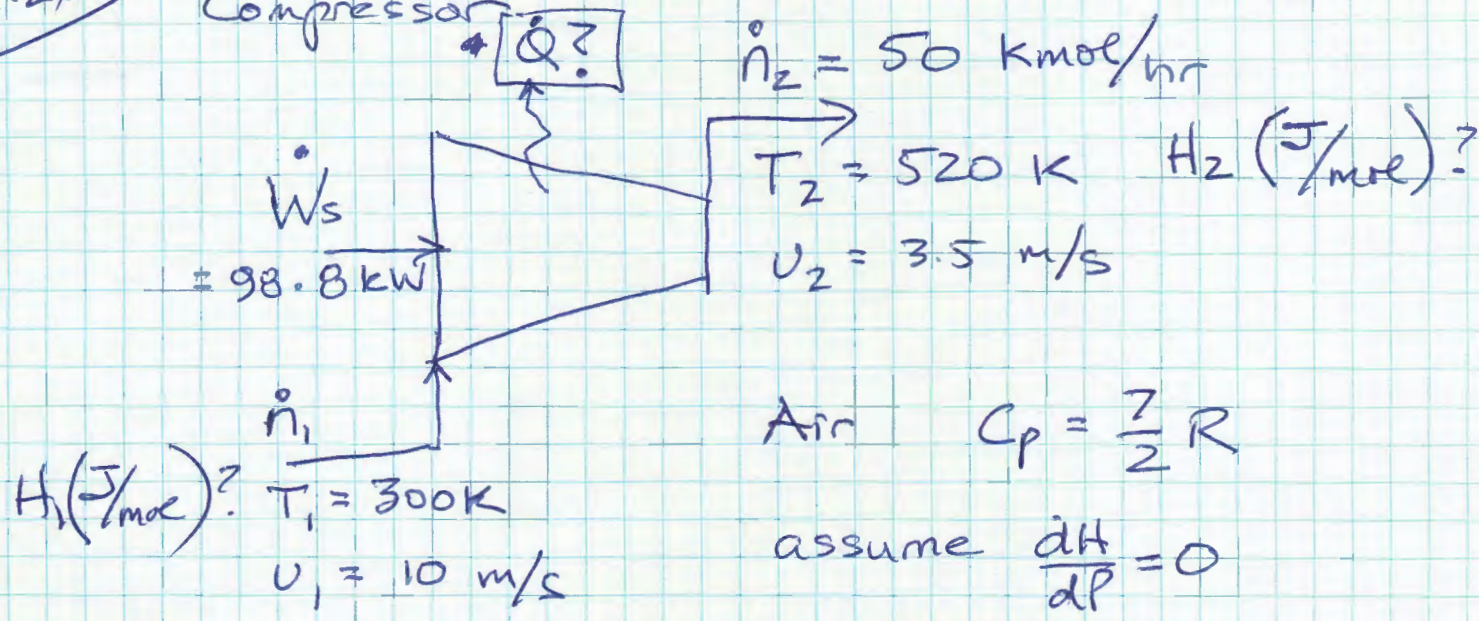 Compressor
Q̇?
ṅ₂ = 50 kmol/hr
T₂ = 520 K H₂ (J/mol)?
υ₂ = 3.5 m/s
Ẇs
= 98.8 kW
ṅ₁
H₁(J/mol)? T₁ = 300K
υ₁ = 10 m/s
Air Cp = 7/2 R
assume dH/dP = 0